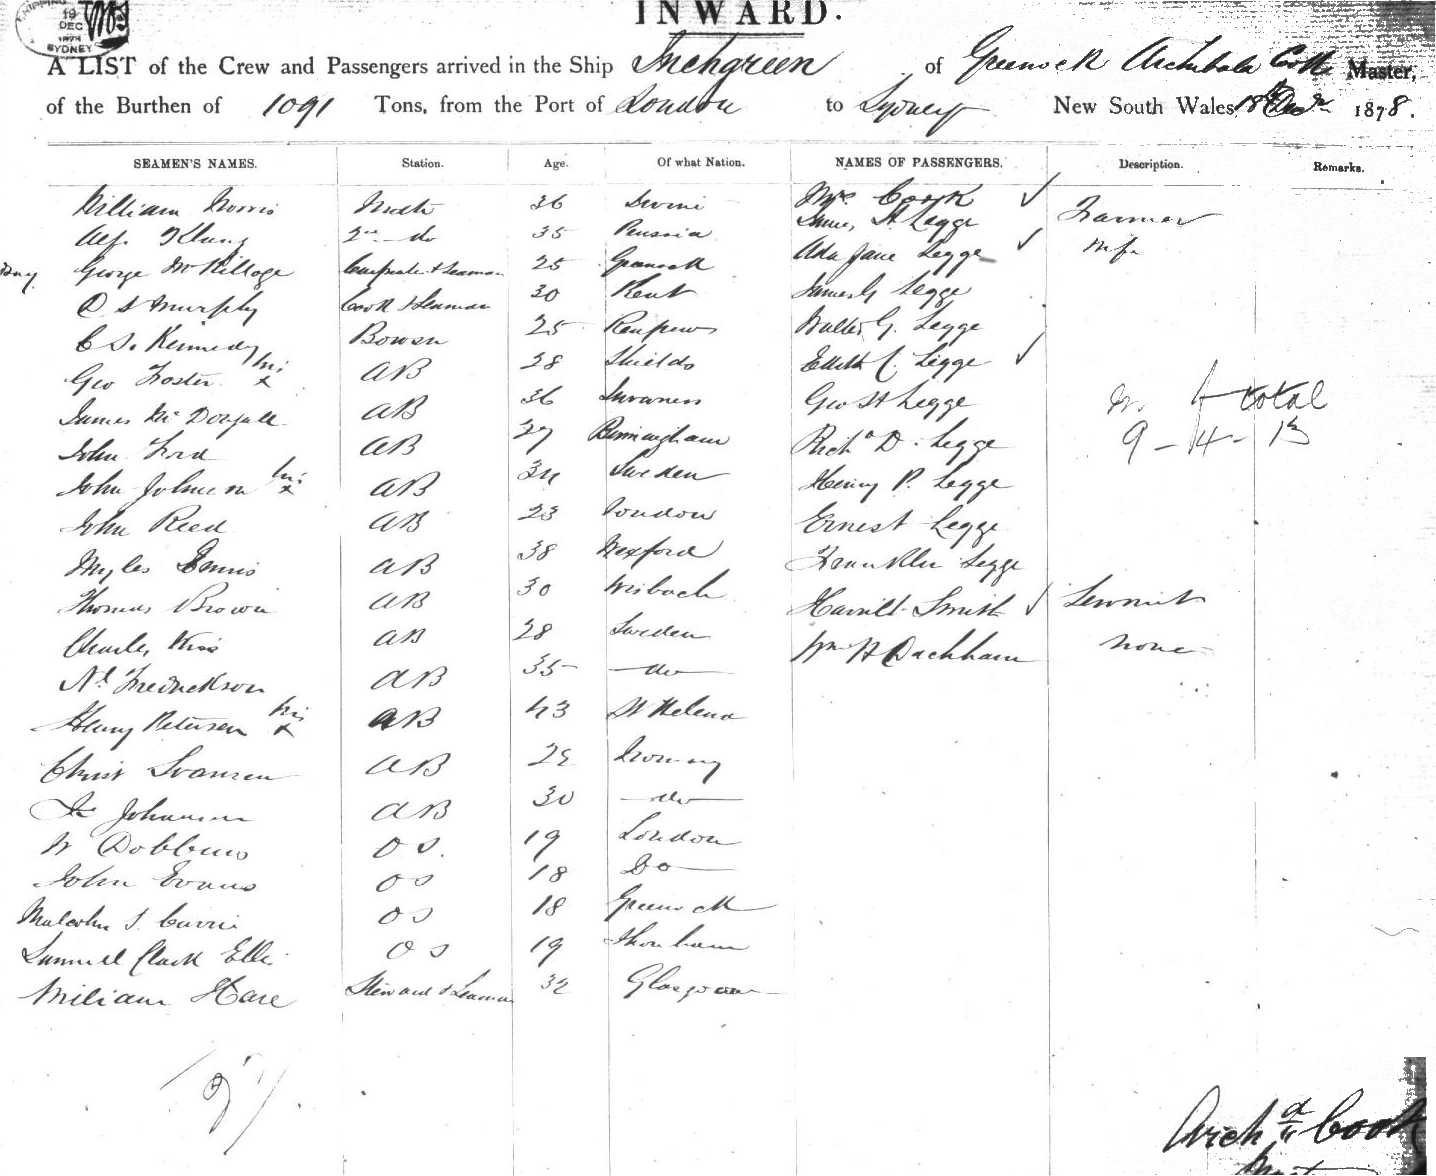 INWARD.
19 DEC 1878 SYDNEY
A LIST of the Crew and Passengers arrived in the Ship Inchgreen of Greenock Archibald Cook Master,
of the Burthen of 1091 Tons, from the Port of London to Sydney New South Wales 18th Decr 1878.
SEAMEN'S NAMES. Station. Age. Of what Nation. NAMES OF PASSENGERS. Description. Remarks.
William Morris Mate 36 Mrs Cook
James H Legge Farmer
35 Prussia
Ada Jane Legge Wife
George 25 Greenock
James G Legge
D S Murphy Cook & Seaman 30 Kent
Walter G. Legge
C S. Kennedy Bowsn 25 Renfrew
Edith C. Legge
Geo Foster his x AB 28 Shields
Geo H Legge
James McDougall AB 36 Inverness
total
John Ford AB 27 Birmingham Richd D. Legge 9 - 4 - 13
John Johnson his x AB 34 Sweden Henry P. Legge
John Reed AB 23 London Ernest Legge
Myles Ennis AB 38 Wexford Franklin Legge
Thomas Brown AB 30 Wisbach Harriet Smith Servant
Charles AB 28 Sweden Wm H Dackham None
Nl Fredrickson AB 35 do
Henry Petersen his x AB 43 St Helena
Christ AB Norway
Johansen AB 30 do
W Dobbins OS. 19 London
John Evans OS 18 Do
Malcolm S. Currie OS 18 Greenock
Samuel Clark Ellis OS 19
William Hare Steward & Seaman 32 Glasgow
Archd Cook
Master